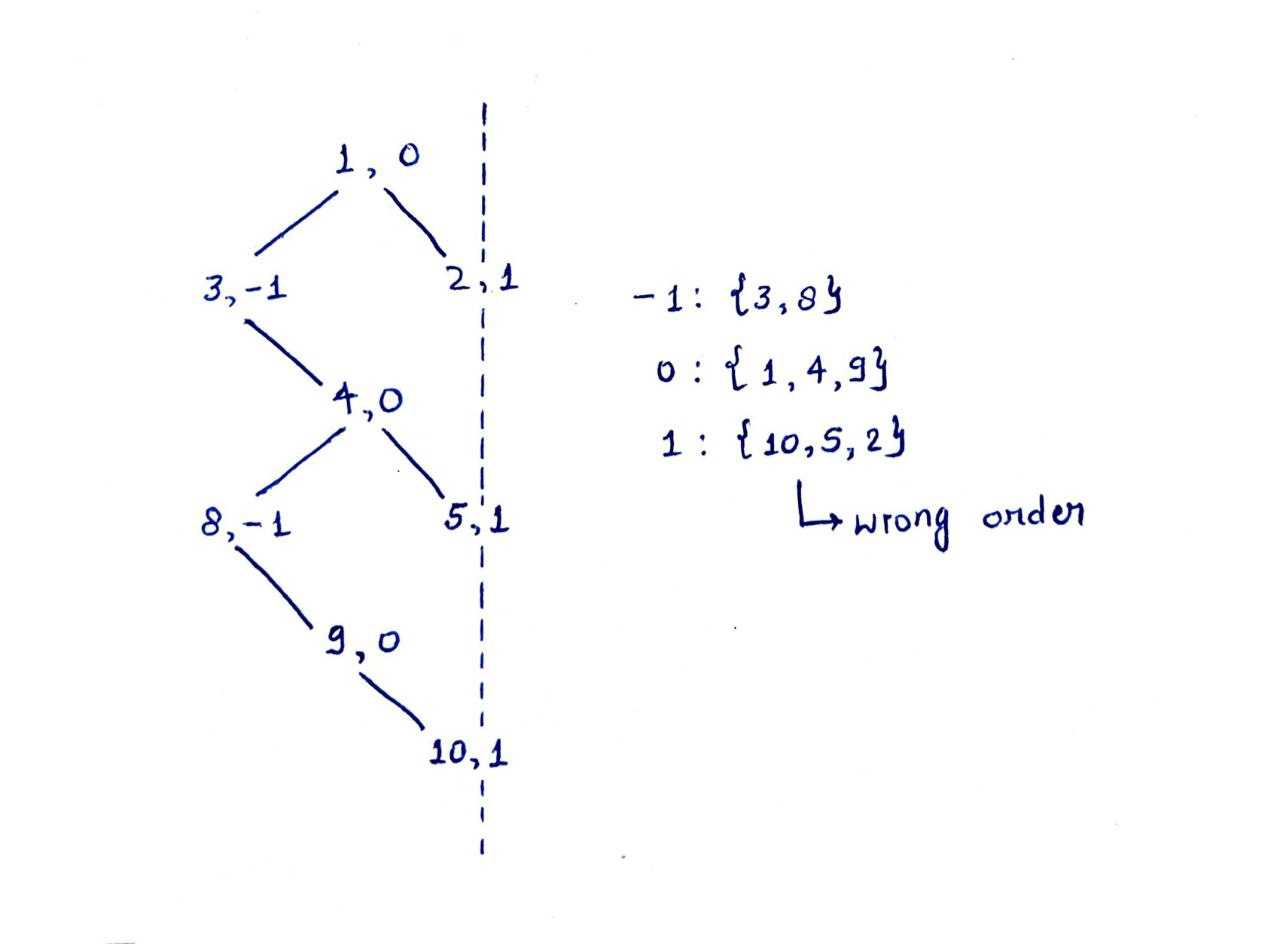 1, 0
3,-1
2,1
4,0
8,-1
5,1
9,0
10,1
-1: {3,8}
0: {1,4,9}
1: {10,5,2}
wrong order